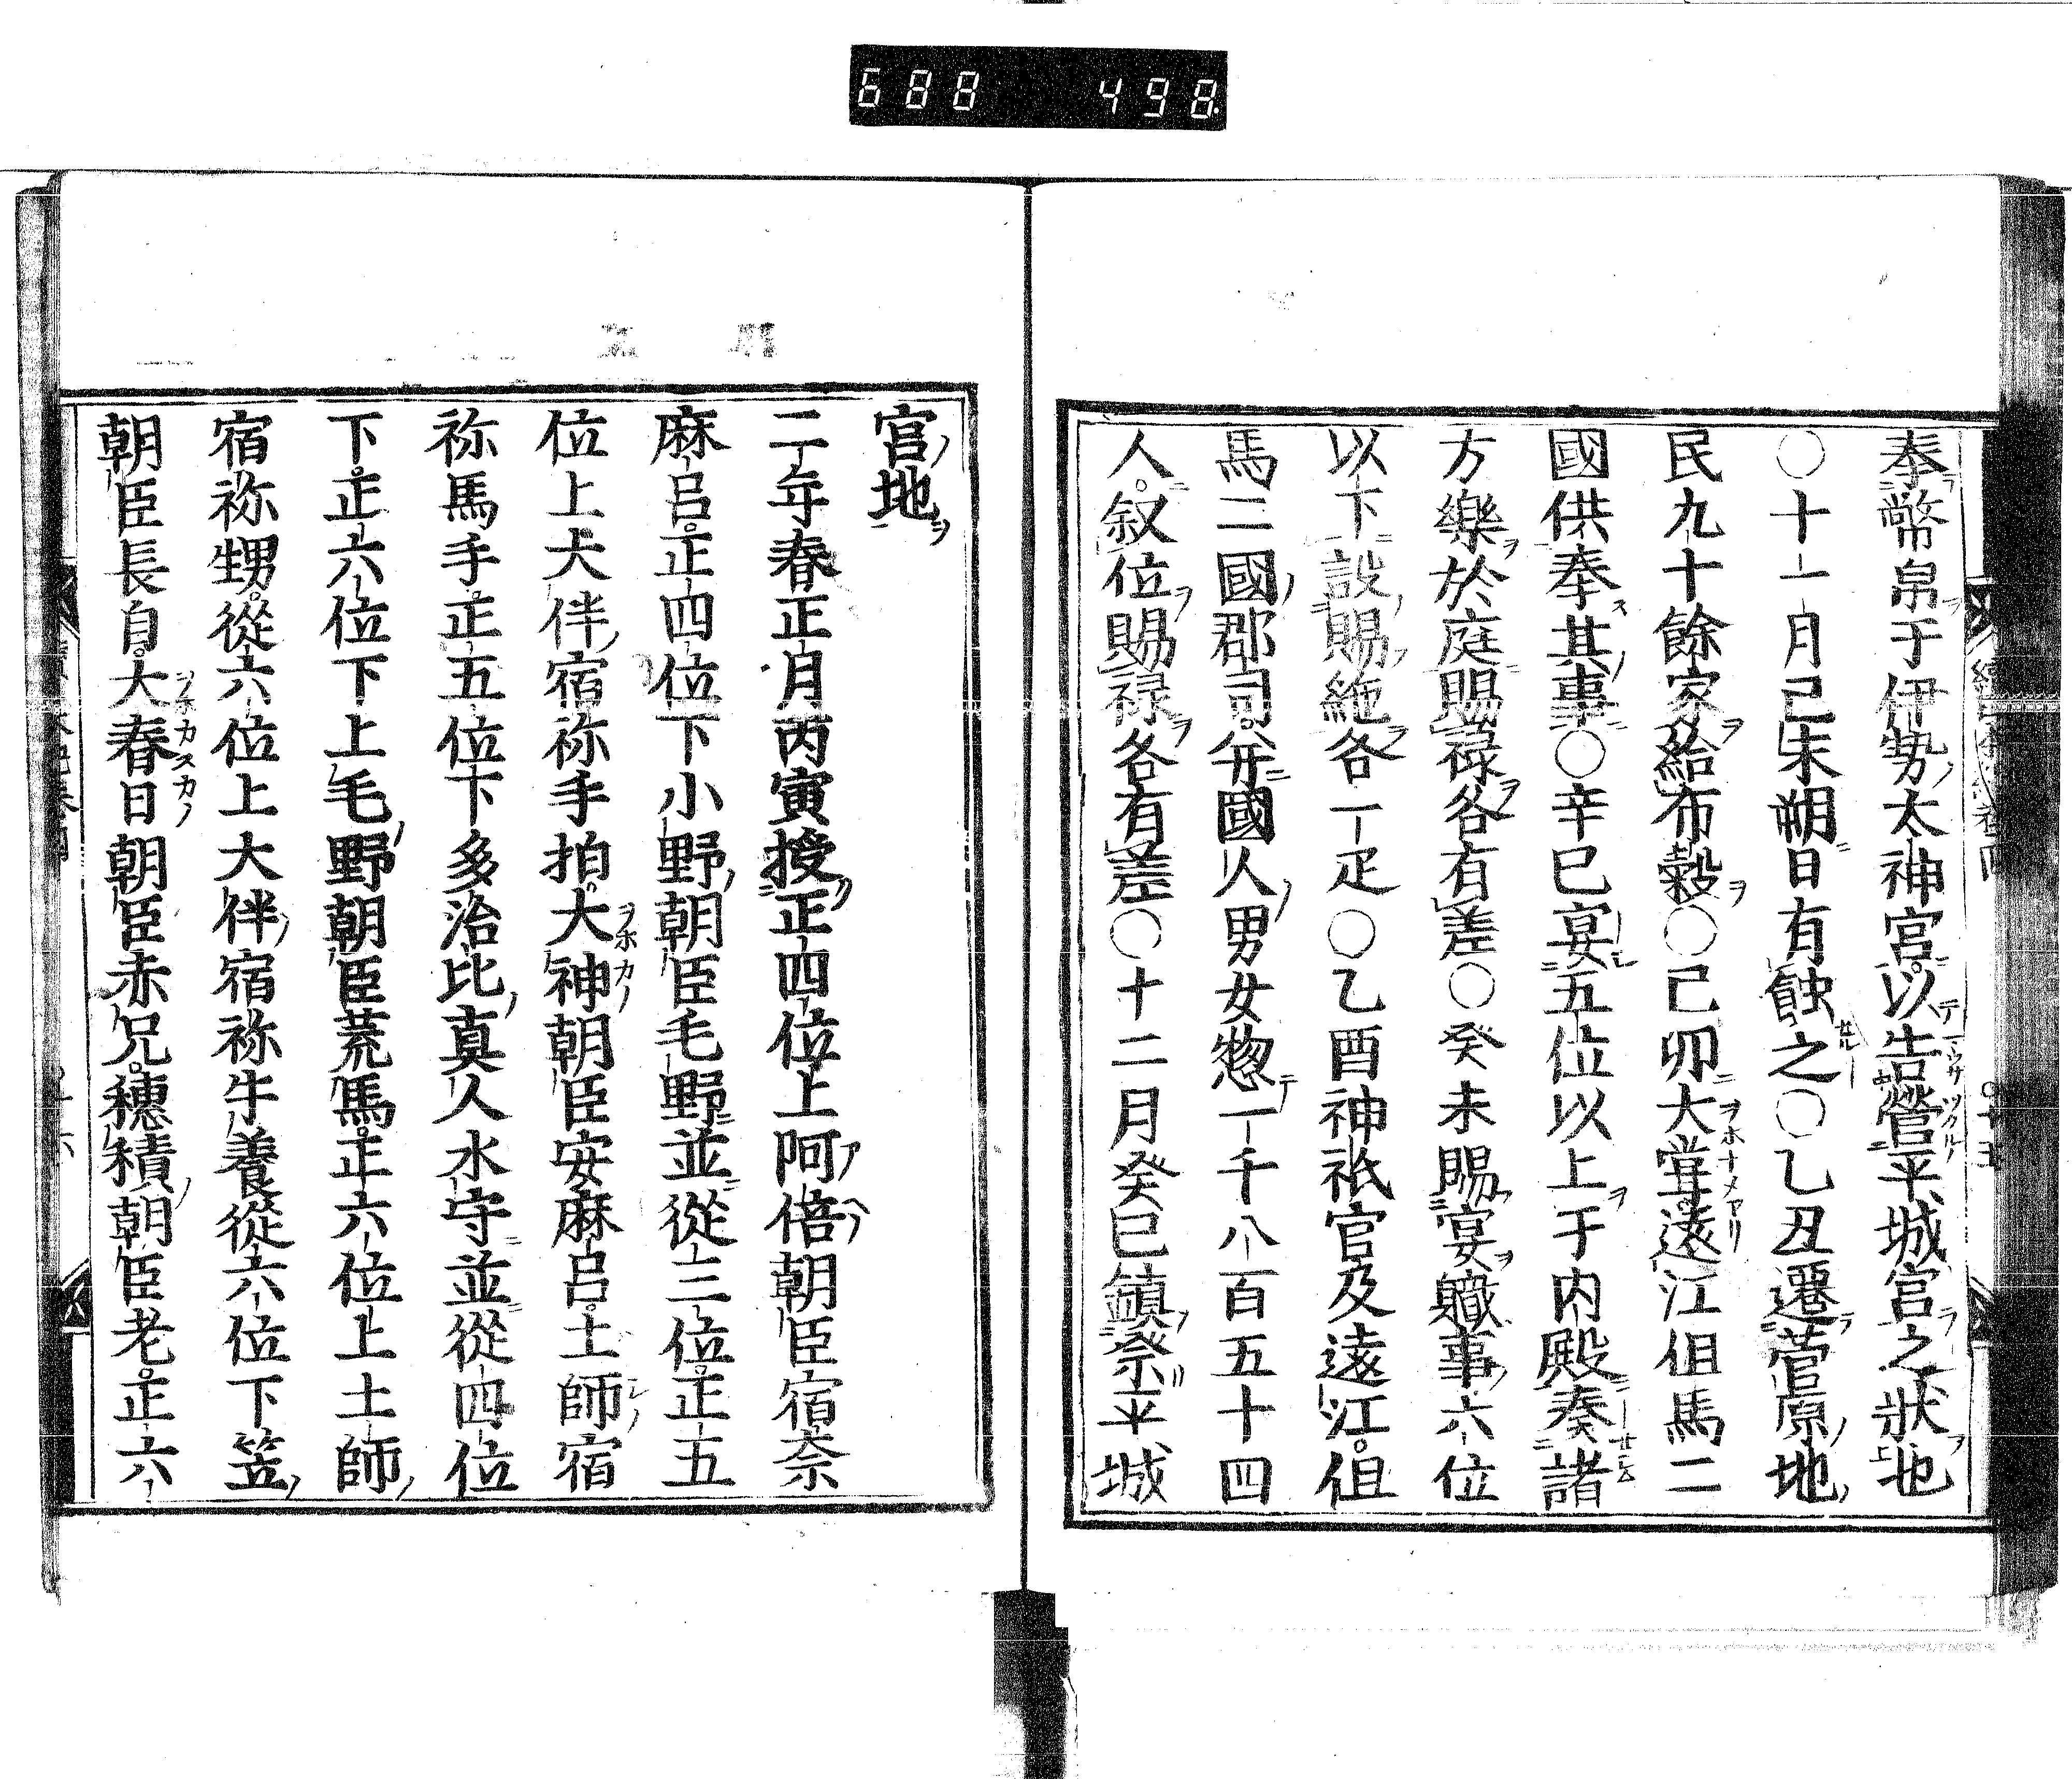 688 498
奉幣帛于伊勢太神宮以告營平城宮之狀也
〇十一月己未朔日有蝕之〇乙丑遷菅原地
民九十餘家給布穀〇己卯大嘗遠江但馬二
國供奉其事〇辛巳宴五位以上于内殿奏諸
方樂於庭賜祿各有差〇癸未賜宴職事六位
以下設賜絁各一疋〇乙酉神祇官及遠江但
馬二國郡司并國人男女惣一千八百五十四
人叙位賜祿各有差〇十二月癸巳鎮祭平城
宮地
二年春正月丙寅授正四位上阿倍朝臣宿奈
麻呂正四位下小野朝臣毛野並從三位正五
位上大伴宿祢手拍大神朝臣安麻呂土師宿
祢馬手正五位下多治比真人水守並從四位
下正六位下上毛野朝臣荒馬正六位上土師
宿祢甥從六位上大伴宿祢牛養從六位下笠
朝臣長自大春日朝臣赤兄穗積朝臣老正六